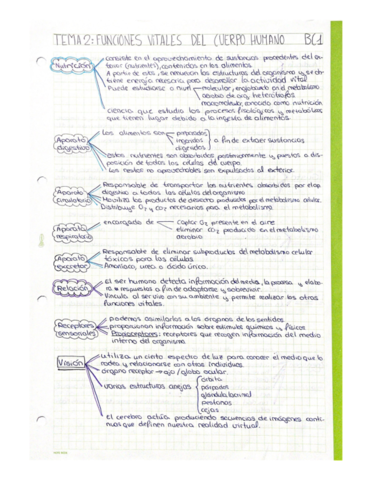 TEMA 2: FUNCIONES VITALES DEL CUERPO HUMANO BC1
Nutrición
consiste en el aprovechamiento de sustancias procedentes del ex-
terior (nutrientes), contenidos en los alimentos.
A partir de estos, se renuevan las estructuras del organismo y se ob-
tiene energía necesaria para desarrollar la actividad vital
Puede estudiarse a nivel molecular, englobando en el metabolismo
ciencia que estudia los procesos fisiológicos y metabólicos
que tienen lugar debido a la ingesta de alimentos.
Aparato digestivo
Los alimentos son preparados
ingeridos a fin de extraer sustancias
digeridos
estos nutrientes son absorbidos posteriormente y puestos a dis-
posición de todas las células del cuerpo.
Los restos no aprovechables son expulsados al exterior.
Aparato circulatorio
Responsable de transportar los nutrientes absorbidos por el ap.
digestivo a todas las células del organismo
Moviliza los productos de desecho producidos por el metabolismo celular.
Distribuye O2 y CO2 necesarios para el metabolismo.
Aparato respiratorio
encargado de captar O2 presente en el aire
eliminar CO2 producido en el metabolismo
aerobio
Aparato excretor
Responsable de eliminar subproductos del metabolismo celular
tóxicos para las células.
Amoniaco, urea o ácido úrico.
Relación
El ser humano detecta información del medio, la procesa y elabo-
ra respuestas a fin de adaptarse y sobrevivir.
Vincula al ser vivo con su ambiente y permite realizar las otras
funciones vitales.
Receptores sensoriales
podemos asimilarlos a los órganos de los sentidos
proporcionan información sobre estímulos químicos y físicos
Propioceptores: receptores que recogen información del medio
interno del organismo
Visión
utiliza un cierto espectro de luz para conocer el medio que lo
rodea y relacionarse con otros individuos.
órgano receptor → ojo / globo ocular.
varias estructuras anejas
órbita
párpados
glándula lacrimal
pestañas
cejas
El cerebro actúa produciendo secuencias de imágenes conti-
nuas que definen nuestra realidad virtual.